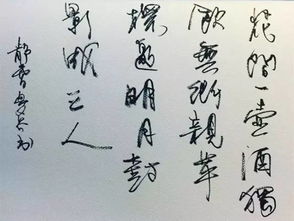 花間一壺酒獨
酌無相親舉
杯邀明月對
影成三人